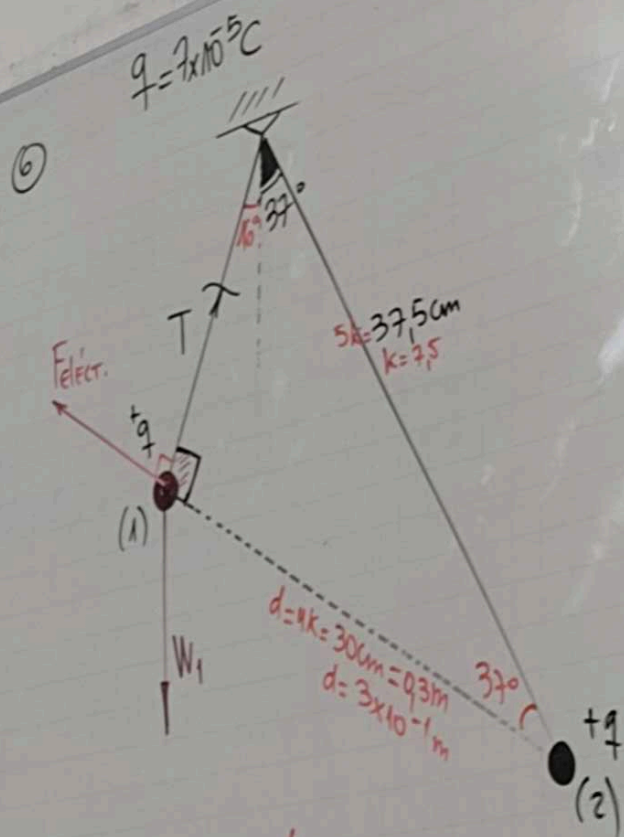 q=7x10⁻⁵C
6
16°
37°
T
5k=37,5cm
k=7,5
FELÉCT.
+q
(1)
W₁
d=4k=30cm=0,3m
d=3x10⁻¹m
37°
+q
(2)